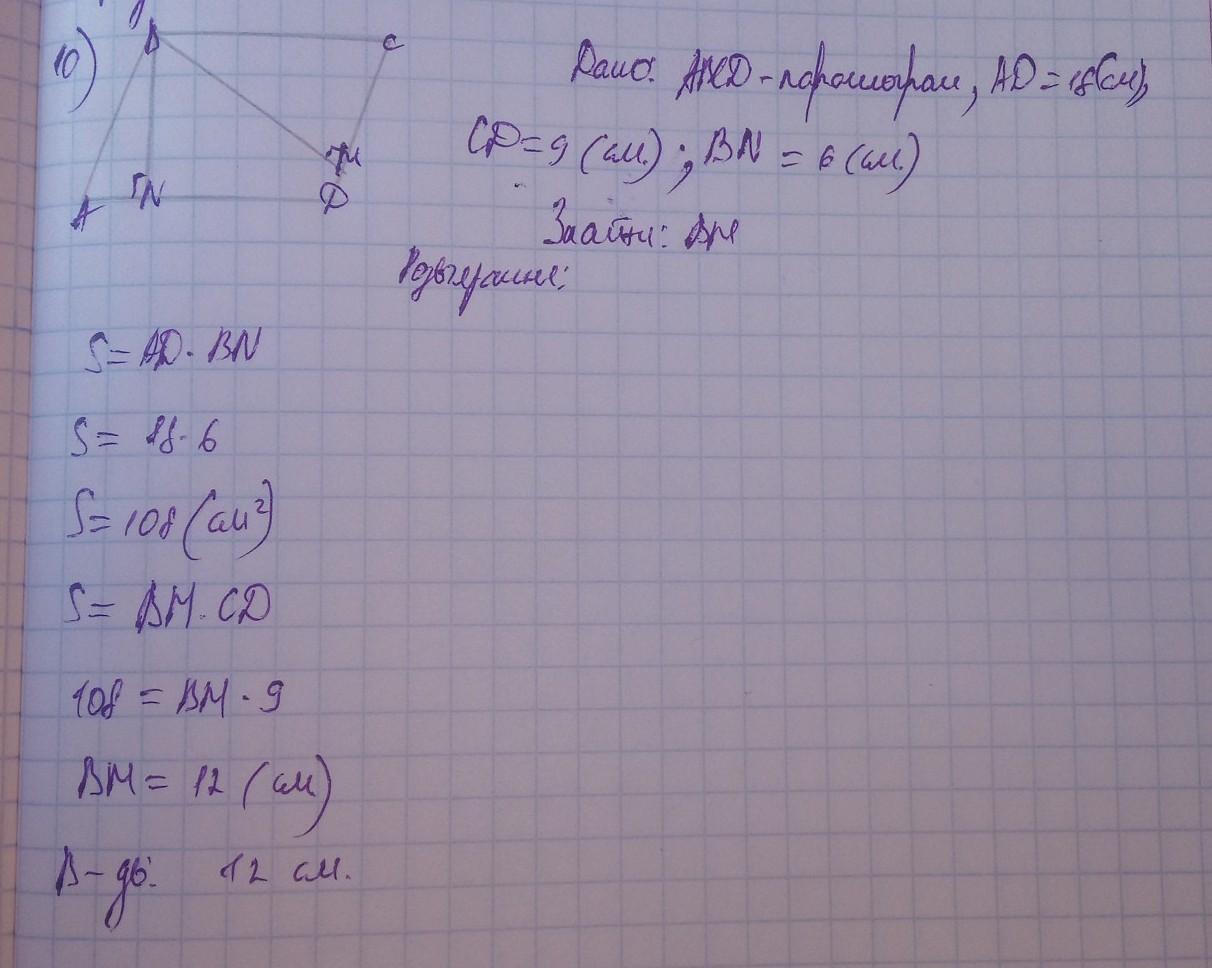 10)
B C
M
A N D
Дано: ABCD - параллограм, AD = 18(см),
CD = 9 (см.); BN = 6 (см.)
Знайти: BM
S = AD · BN
S = 18 · 6
S = 108 (см²)
S = BM · CD
108 = BM · 9
BM = 12 (см)
В-дь: 12 см.